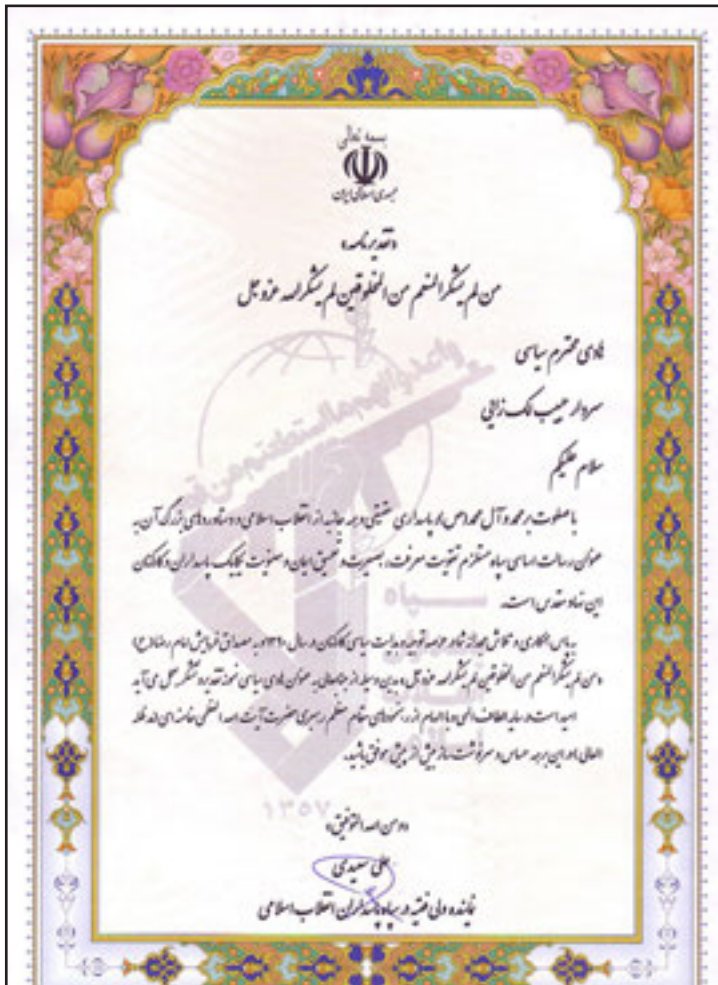 بسمه تعالی
جمهوری اسلامی ایران
«تقدیرنامه»
من لم یشکر المنعم من المخلوقین لم یشکر الله عزوجل
هادی محترم سیاسی
سردار حبیب لک زایی
سلام علیکم
با صلوات بر محمد و آل محمد(ص) و پاسداری حقیقی و همه جانبه از انقلاب اسلامی و دستاوردهای بزرگ آن به
عنوان رسالت اساسی سپاه مستلزم تقویت معرفت، بصیرت و تعمیق ایمان و معنویت یکایک پاسداران و کارکنان
این نهاد مقدس است.
به پاس همکاری و تلاش مجدانه شما در عرصه توجیه و هدایت سیاسی کارکنان در سال ۱۳۹۰ و به مصداق فرمایش امام رضا(ع)
«من لم یشکر المنعم من المخلوقین لم یشکر الله عزوجل» بدین وسیله از جنابعالی به عنوان هادی سیاسی نمونه تقدیر و تشکر بعمل می آید
امید است در سایه الطاف الهی و با الهام از رهنمودهای مقام معظم رهبری حضرت آیت الله العظمی خامنه ای (مدظله
العالی) در این برهه حساس و سرنوشت ساز بیش از پیش موفق باشید.
«و من الله التوفیق»
علی سعیدی
نماینده ولی فقیه در سپاه پاسداران انقلاب اسلامی
واعدوا لهم ما استطعتم من قوة
سپاه
۱۳۵۷